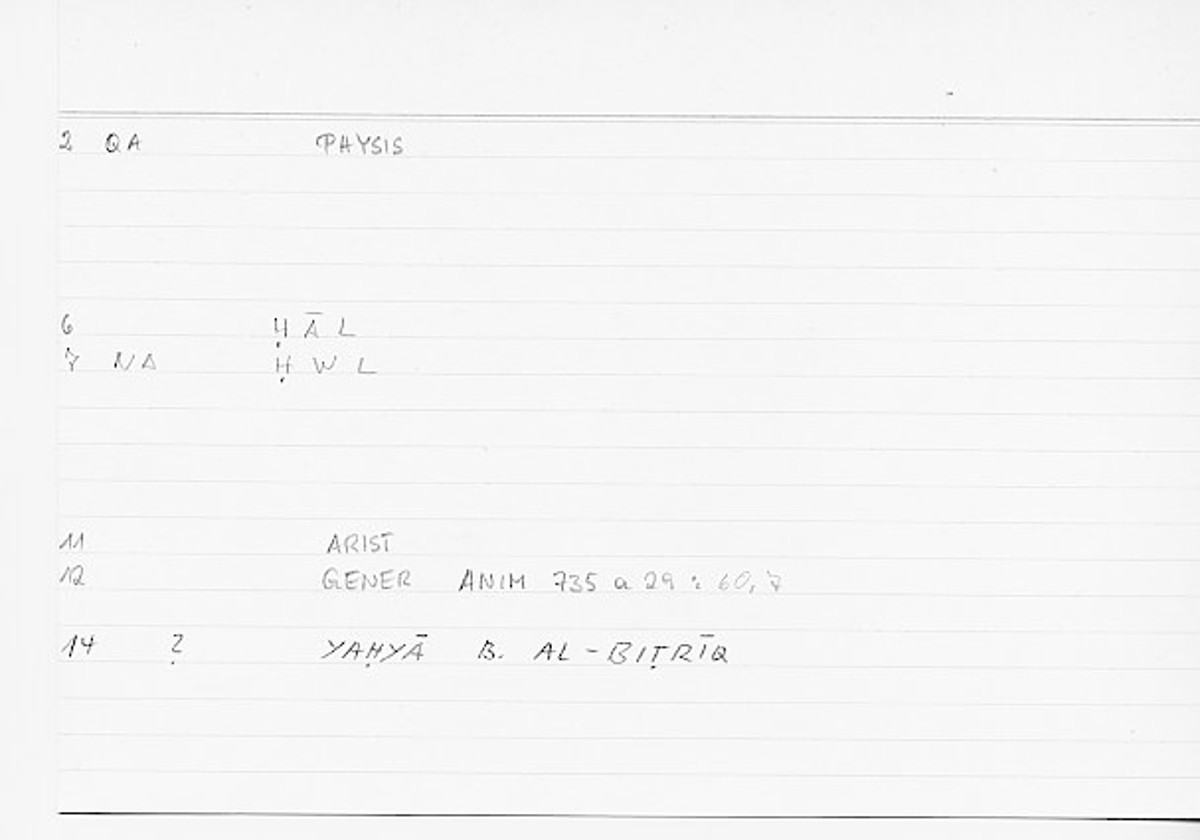 2 QA PHYSIS
6 Ḥ Ā L
7 NA Ḥ W L
11 ARIST
12 GENER ANIM 735 a 29 : 60, 7
14 ? YAḤYĀ B. AL-BIṬRĪQ